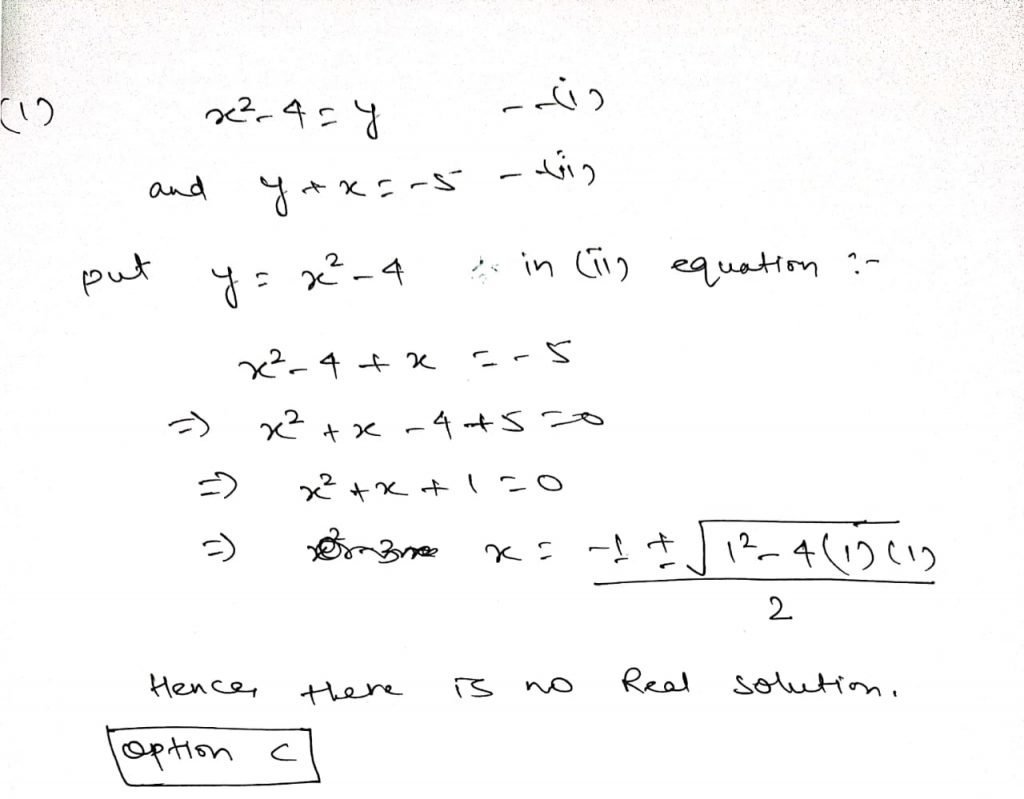 (1) x² - 4 = y -- (i)
and y + x = -5 -- (ii)
put y = x² - 4 in (ii) equation :-
x² - 4 + x = -5
=) x² + x - 4 + 5 = 0
=) x² + x + 1 = 0
=) x = -1 ± √1² - 4(1)(1) / 2
Hence, there is no Real solution.
option c